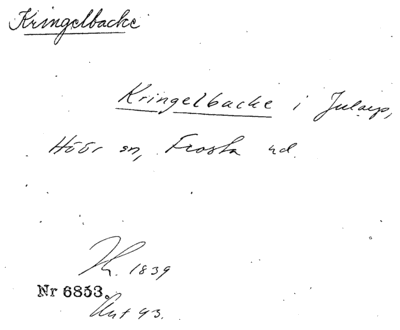 Kringelbacke
Kringelbacke i Jularp,
Höör sn, Frosta hd.
1839
Nr 6853.